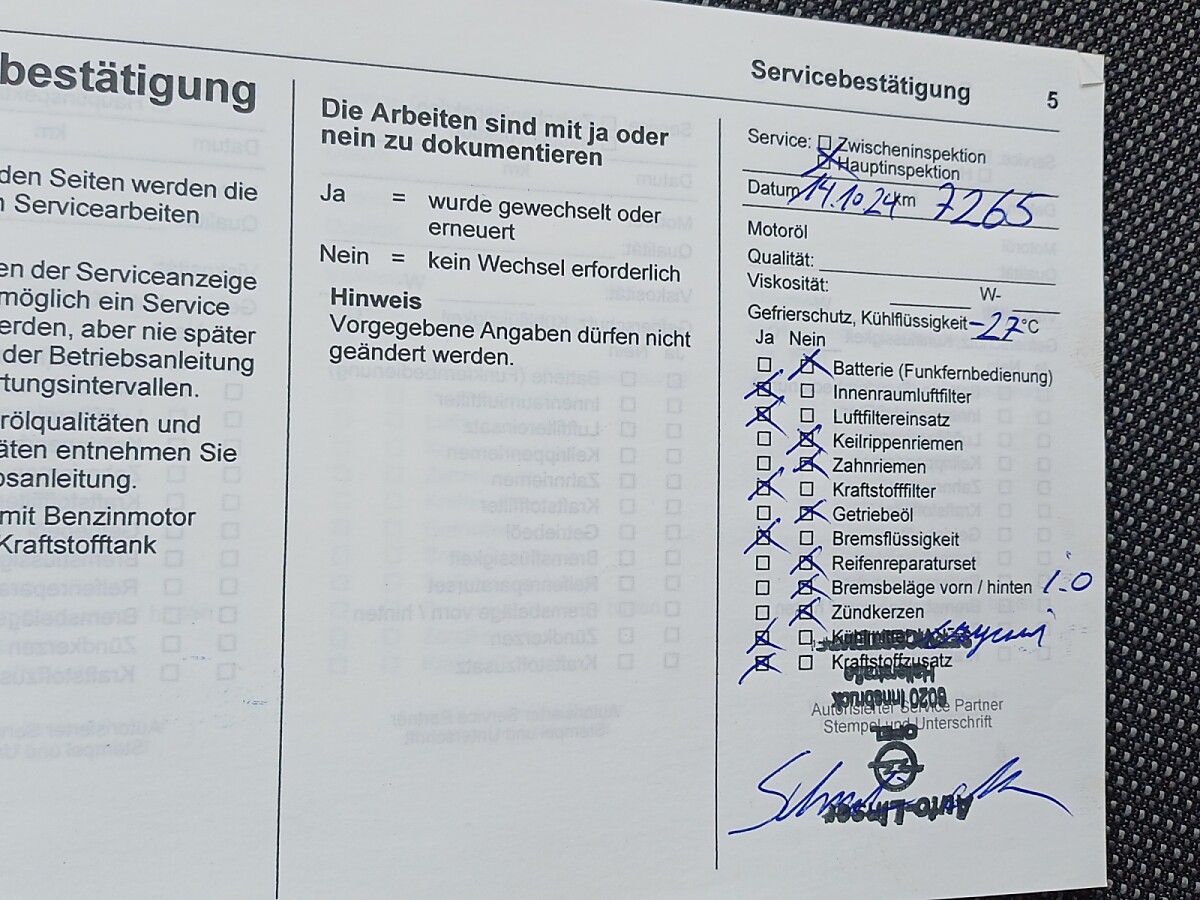 bestätigung
den Seiten werden die
n Servicearbeiten
en der Serviceanzeige
möglich ein Service
erden, aber nie später
der Betriebsanleitung
rtungsintervallen.
rölqualitäten und
äten entnehmen Sie
osanleitung.
mit Benzinmotor
Kraftstofftank
Die Arbeiten sind mit ja oder
nein zu dokumentieren
Ja = wurde gewechselt oder
erneuert
Nein = kein Wechsel erforderlich
Hinweis
Vorgegebene Angaben dürfen nicht
geändert werden.
Servicebestätigung 5
Service: Zwischeninspektion
Hauptinspektion
Datum 14.10.24 km 7265
Motoröl
Qualität:
Viskosität: W-
Gefrierschutz, Kühlflüssigkeit -27 °C
Ja Nein
Batterie (Funkfernbedienung)
Innenraumluftfilter
Luftfiltereinsatz
Keilrippenriemen
Zahnriemen
Kraftstofffilter
Getriebeöl
Bremsflüssigkeit
Reifenreparaturset
Bremsbeläge vorn / hinten i.O
Zündkerzen
Kraftstoffzusatz
Hallerstraße
6020 Innsbruck
Autorisierter Service Partner
Stempel und Unterschrift
OPEL
Auto-Linser